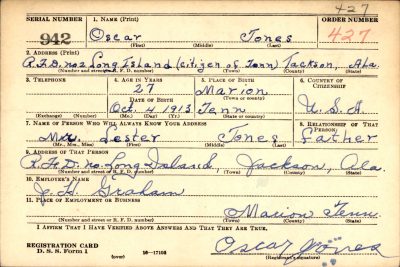 427
SERIAL NUMBER 1. NAME (Print) ORDER NUMBER
942 Oscar Jones 427
(First) (Middle) (Last)
2. ADDRESS (Print)
R.F.D. no 2 Long Island (Citizen of Tenn) Jackson, Ala.
(Number and street or R. F. D. number) (Town) (County) (State)
3. TELEPHONE 4. AGE IN YEARS 5. PLACE OF BIRTH 6. COUNTRY OF CITIZENSHIP
27 Marion
DATE OF BIRTH (Town or county)
Oct. 4 1913 Tenn U.S.A.
(Exchange) (Number) (Mo.) (Day) (Yr.) (State or country)
7. NAME OF PERSON WHO WILL ALWAYS KNOW YOUR ADDRESS 8. RELATIONSHIP OF THAT PERSON
Lester Jones Father
(Mr., Mrs., Miss) (First) (Middle) (Last)
9. ADDRESS OF THAT PERSON
R.F.D. no. Long Island, Jackson, Ala
(Number and street or R. F. D. number) (Town) (County) (State)
10. EMPLOYER'S NAME
Graham
11. PLACE OF EMPLOYMENT OR BUSINESS
Marion Tenn
(Number and street or R. F. D. number) (Town) (County) (State)
I AFFIRM THAT I HAVE VERIFIED ABOVE ANSWERS AND THAT THEY ARE TRUE.
REGISTRATION CARD
D. S. S. Form 1 (over) 16—17105 Oscar Jones
(Registrant's signature)